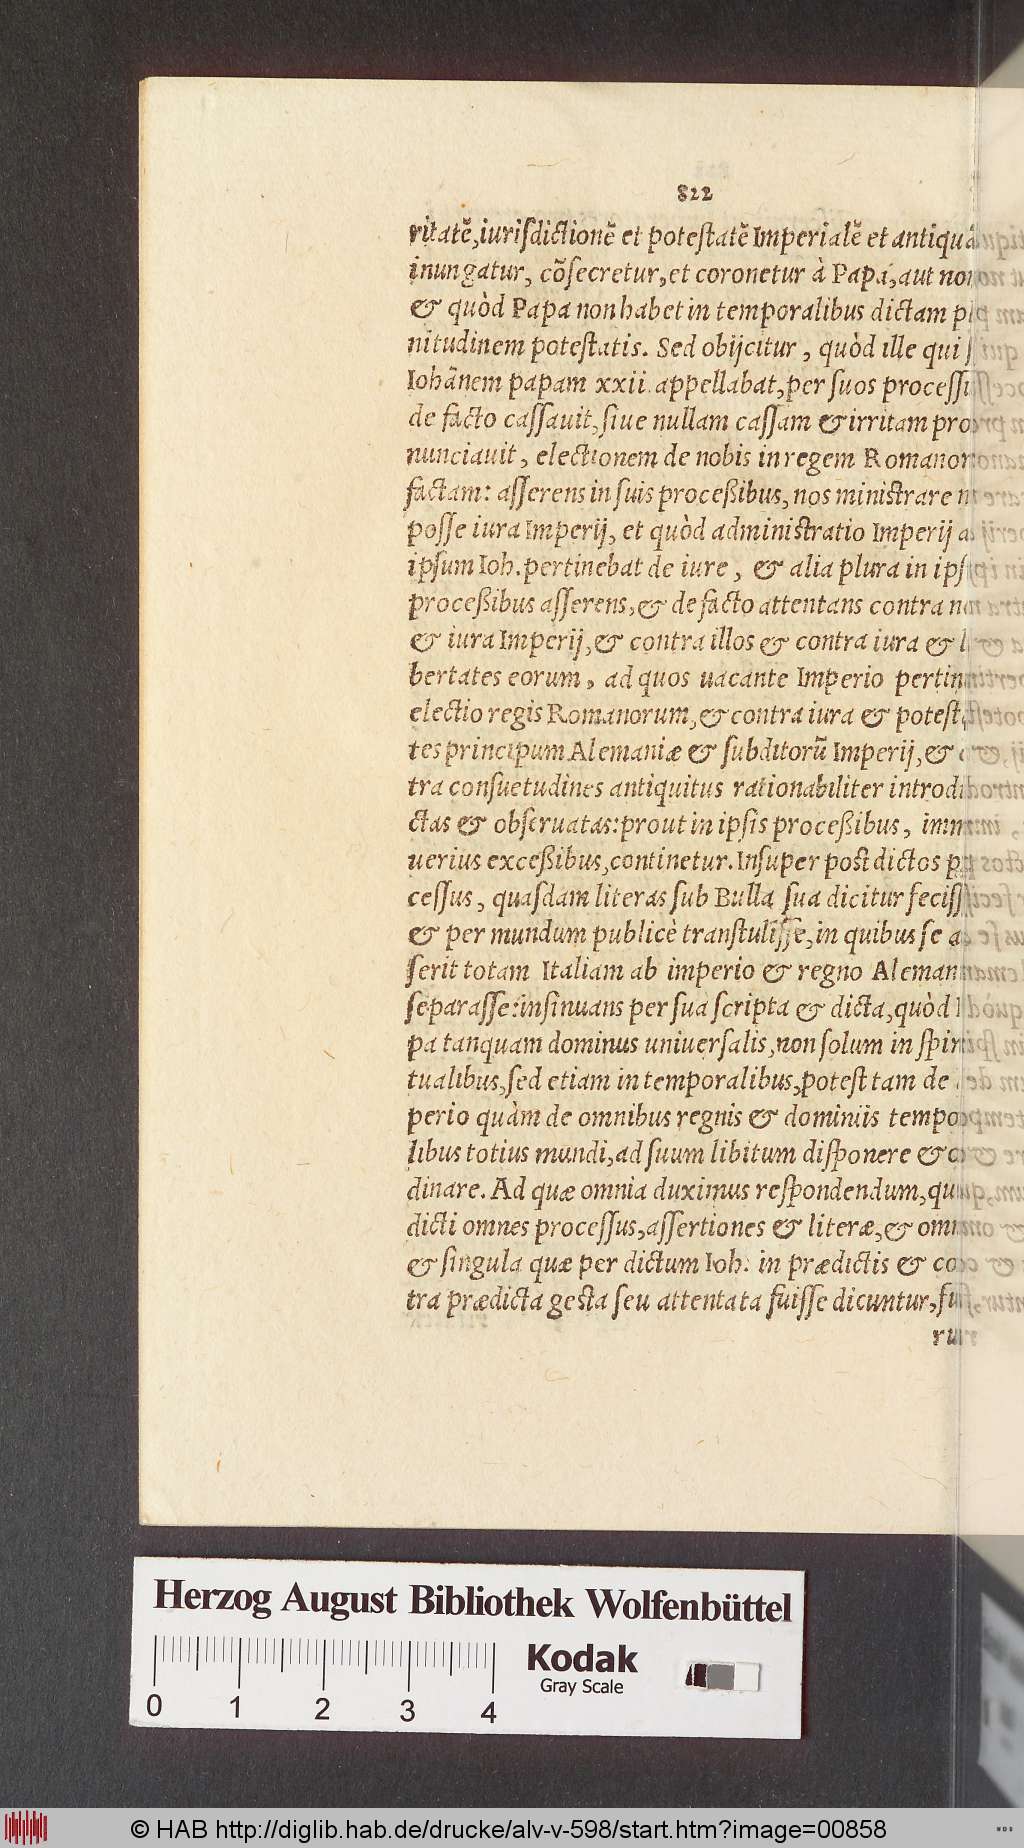 822
ritatē, iurisdictionē et potestatē Imperialē et antiquā
inungatur, cōsecretur, et coronetur à Papa, aut non
& quòd Papa non habet in temporalibus dictam
nitudinem potestatis. Sed obijcitur, quòd ille qui
Iohānem papam xxii. appellabat, per suos
de facto cassauit, siue nullam cassam & irritam pro
nunciauit, electionem de nobis in regem
factam: asserens in suis processibus, nos ministrare
posse iura Imperij, et quòd administratio Imperij
ipsum Ioh. pertinebat de iure, & alia plura in
processibus asserens, & de facto attentans contra
& iura Imperij, & contra illos & contra iura &
bertates eorum, ad quos uacante Imperio
electio regis Romanorum, & contra iura &
tes principum Alemaniæ & subditorū Imperij, &
tra consuetudines antiquitus rationabiliter
ctas & obseruatas: prout in ipsis processibus,
uerius excessibus, continetur. Insuper post dictos
cessus, quasdam literas sub Bulla sua dicitur
& per mundum publicè transtulisse, in quibus se
serit totam Italiam ab imperio & regno
separasse: insinuans per sua scripta & dicta, quòd
pa tanquam dominus uniuersalis, non solum in spiri
tualibus, sed etiam in temporalibus, potest tam de
perio quàm de omnibus regnis & dominiis
libus totius mundi, ad suum libitum disponere &
dinare. Ad quæ omnia duximus respondendum,
dicti omnes processus, assertiones & literæ, &
& singula quæ per dictum Ioh. in prædictis &
tra prædicta gesta seu attentata fuisse dicuntur,
Herzog August Bibliothek Wolfenbüttel
Kodak
Gray Scale
0 1 2 3 4
© HAB http://diglib.hab.de/drucke/alv-v-598/start.htm?image=00858